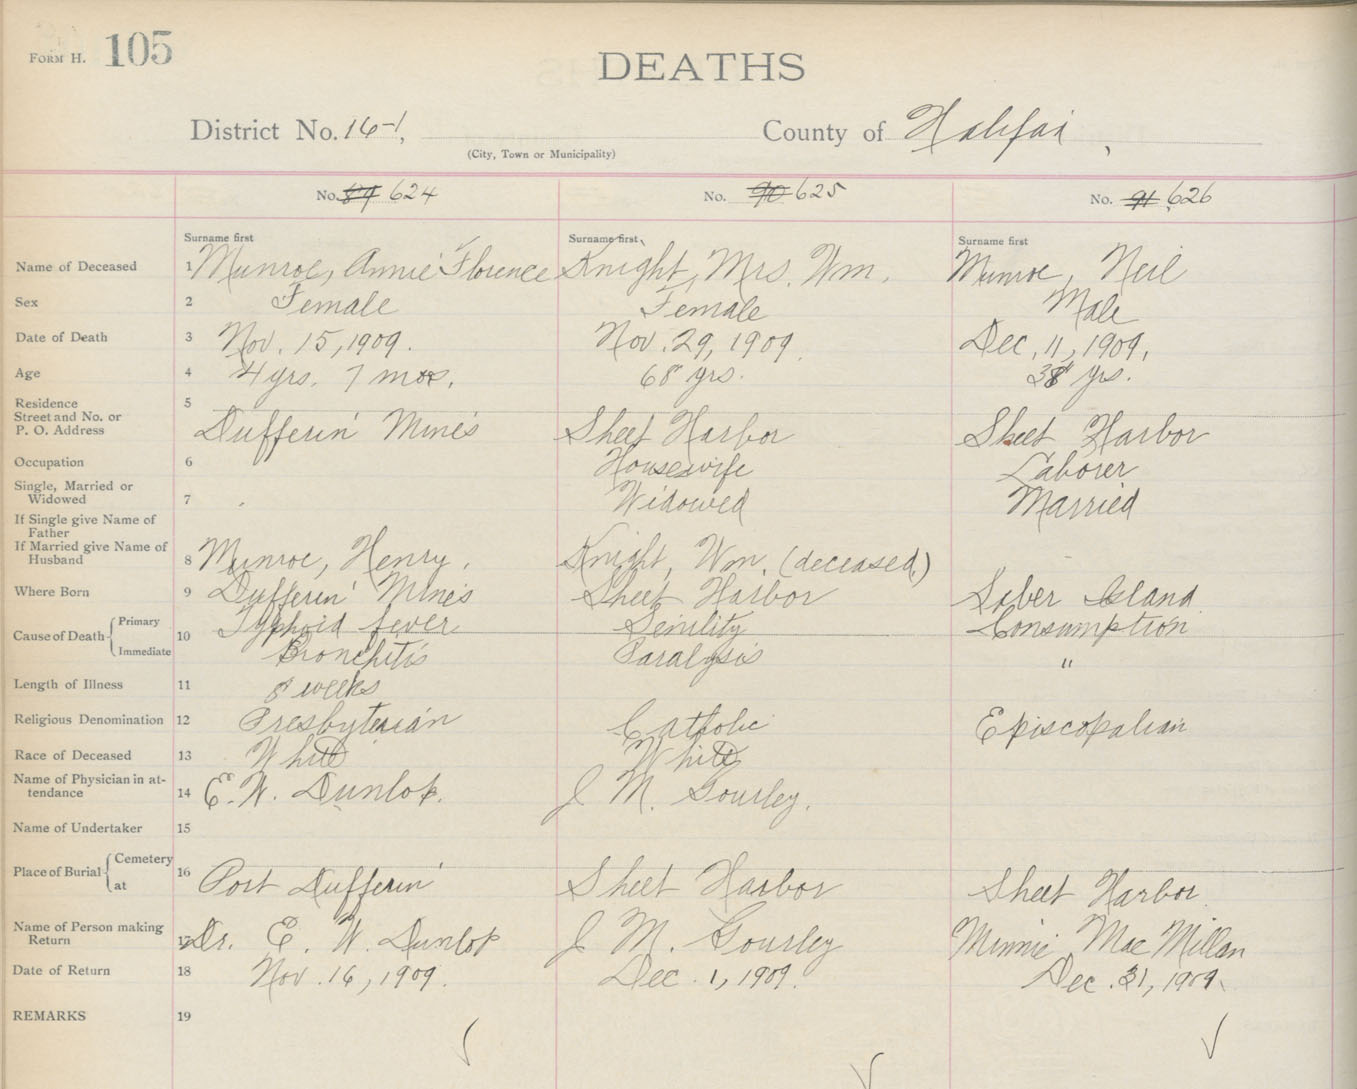 FORM H. 105
DEATHS
District No. 16-1, County of Halifax,
(City, Town or Municipality)
No. 89 624 No. 90 625 No. 91 626
Surname first Surname first Surname first
Name of Deceased 1 Munroe, Annie Florence Knight, Mrs. Wm. Munroe, Neil
Sex 2 Female Female Male
Date of Death 3 Nov. 15, 1909. Nov. 29, 1909. Dec. 11, 1909.
Age 4 4 yrs. 7 mos. 68 yrs. 38 yrs.
Residence 5
Street and No. or
P. O. Address Dufferin Mines Sheet Harbor Sheet Harbor
Occupation 6 Housewife Laborer
Single, Married or
Widowed 7 Widowed Married
If Single give Name of
Father
If Married give Name of
Husband 8 Munroe, Henry. Knight, Wm. (deceased)
Where Born 9 Dufferin Mines Sheet Harbor Sober Island
Cause of Death Primary 10 Typhoid fever Senility Consumption
Immediate Bronchitis Paralysis "
Length of Illness 11 8 weeks
Religious Denomination 12 Presbyterian Catholic Episcopalian
Race of Deceased 13 White White
Name of Physician in at-
tendance 14 E. W. Dunlop. J M. Gourley.
Name of Undertaker 15
Place of Burial Cemetery 16
at Port Dufferin Sheet Harbor Sheet Harbor
Name of Person making
Return 17 Dr. E. W. Dunlop J M. Gourley Minnie MacMillan
Date of Return 18 Nov. 16, 1909. Dec. 1, 1909. Dec. 31, 1909.
REMARKS 19